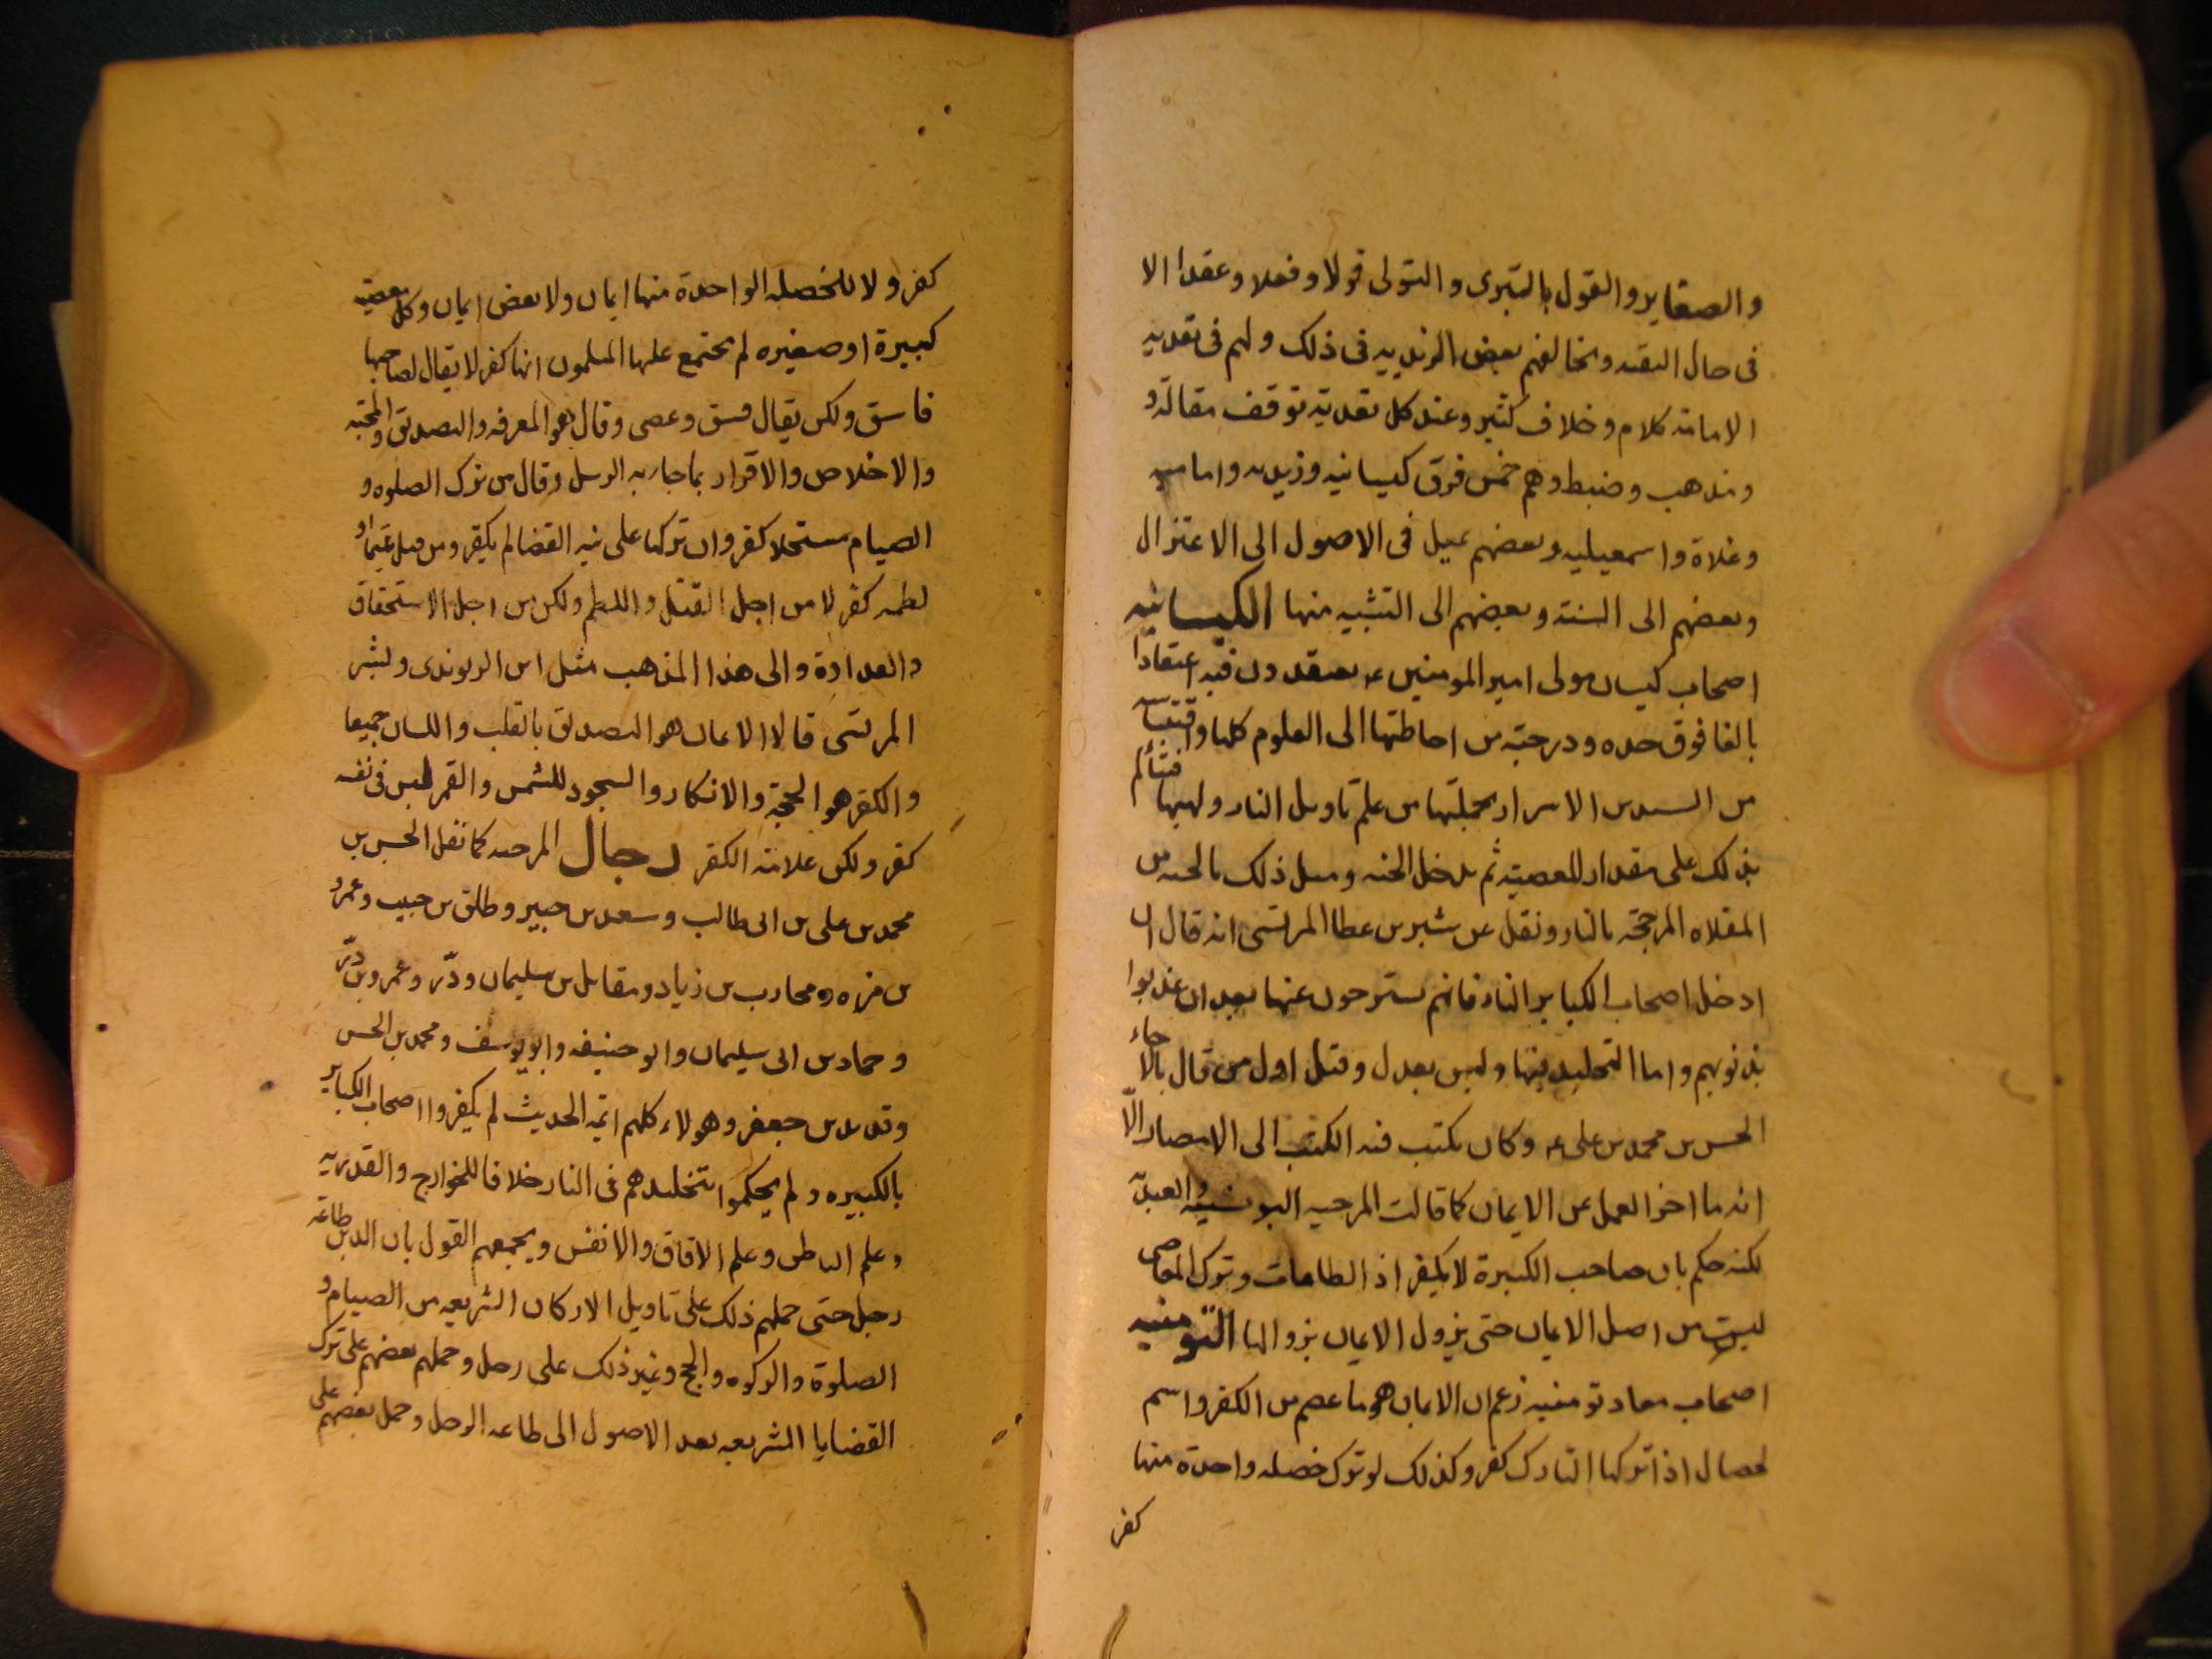 والصغاير والقول بالتبرى والتولى قولا وفعلا وعقدا الا
فى حال التقيه ويخالفهم بعض الزيديه فى ذلك ولهم فى تعديه
الامامة كلام وخلاف كثير وعند كل تعدية توقف مقالة و
ومذهب وضبط وهم خمس فرق كيسانيه وزيديه واماميه
وغلاة واسمعيليه وبعضهم يميل فى الاصول الى الاعتزال
وبعضهم الى السنة وبعضهم الى التشبيه منها الكيسانيه
اصحاب كيسان مولى امير المومنين ع يعتقدون فيه اعتقادا
بالغا فوق حده ودرجته من احاطتها الى العلوم كلها واقتباسه
من السيدين الاسرار بجملتها من علم تاويل النار ولهبها فتألم
بذلك على مقدار المعصية ثم يدخل الجنه ومثل ذلك بالحبه من
المقلاه المرججة بالنار ونقل عن بشير بن عطا المريسى انه قال ان
ادخل اصحاب الكباير النار فانهم سيخرجون عنها بعد ان عذبوا
بذنوبهم واما التخليد فيها وليس بعدل وقيل اول من قال بالارجاء
الحسن بن محمد بن على ع وكان يكتب فيه الكتب الى الامصار الّا
انه ما اخر العمل عن الايمان كما قالت المرجيه اليونسيه والعبيديه
لكنه حكم بان صاحب الكبيرة لا يكفر اذ الطاعات وترك المعاصى
ليست من اصل الايمان حتى يزول الايمان بزوالها التومنيه
اصحاب معاد تومنيه زعم ان الايمان هو ما عصم من الكفر واسم
لخصال اذا تركها التارك كفر وكذلك لو ترك خصله واحدة منها
كفر
كفر ولا للخصله الواحدة منها ايمان ولا بعض ايمان وكل معصيه
كبيرة او صغيره لم يجتمع عليها المسلمون انها كفر لا يقال لصاحبها
فاسق ولكن يقال فسق وعصى وقال هو المعرفه والتصديق والمحبة
والاخلاص والاقرار بما جاء به الرسل وقال من ترك الصلوه و
الصيام مستحلا كفر وان تركها على نيه القضا لم يكفر ومن قتل نبيا او
لطمه كفر لا من اجل القتل واللطم ولكن من اجل الاستحقاق
والعداوة والى هذا المذهب مثل ابن الريوندى وبشر
المريسى قالا الايمان هو التصديق بالقلب واللسان جميعا
والكفر هو الجحد والانكار والسجود للشمس والقمر ليس فى نفسه
كفر ولكن علامة الكفر رجال المرجيه كما نقل الحسن بن
محمد بن على بن ابى طالب وسعيد بن جبير وطلق بن حبيب وعمرو
بن مره ومحارب بن زياد ومقاتل بن سليمان وذرّ وعمرو بن ذرّ
وحماد بن ابى سليمان وابو حنيفه وابو يوسف ومحمد بن الحسن
وقديد بن جعفر وهولاء كلهم ايمة الحديث لم يكفروا اصحاب الكباير
بالكبيره ولم يحكموا بتخليدهم فى النار خلافا للخوارج والقدريه
وعلم الباطن وعلم الافاق والانفس ويجمعهم القول بان الدين طاعة
رجل حتى حملهم ذلك على تاويل الاركان الشريعه من الصيام و
الصلوة والزكوه والحج وغير ذلك على رجل وحملهم بعضهم على ترك
القضايا الشريعه بعد الاصول الى طاعه الرجل وحمل بعضهم على